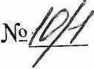 № 1041